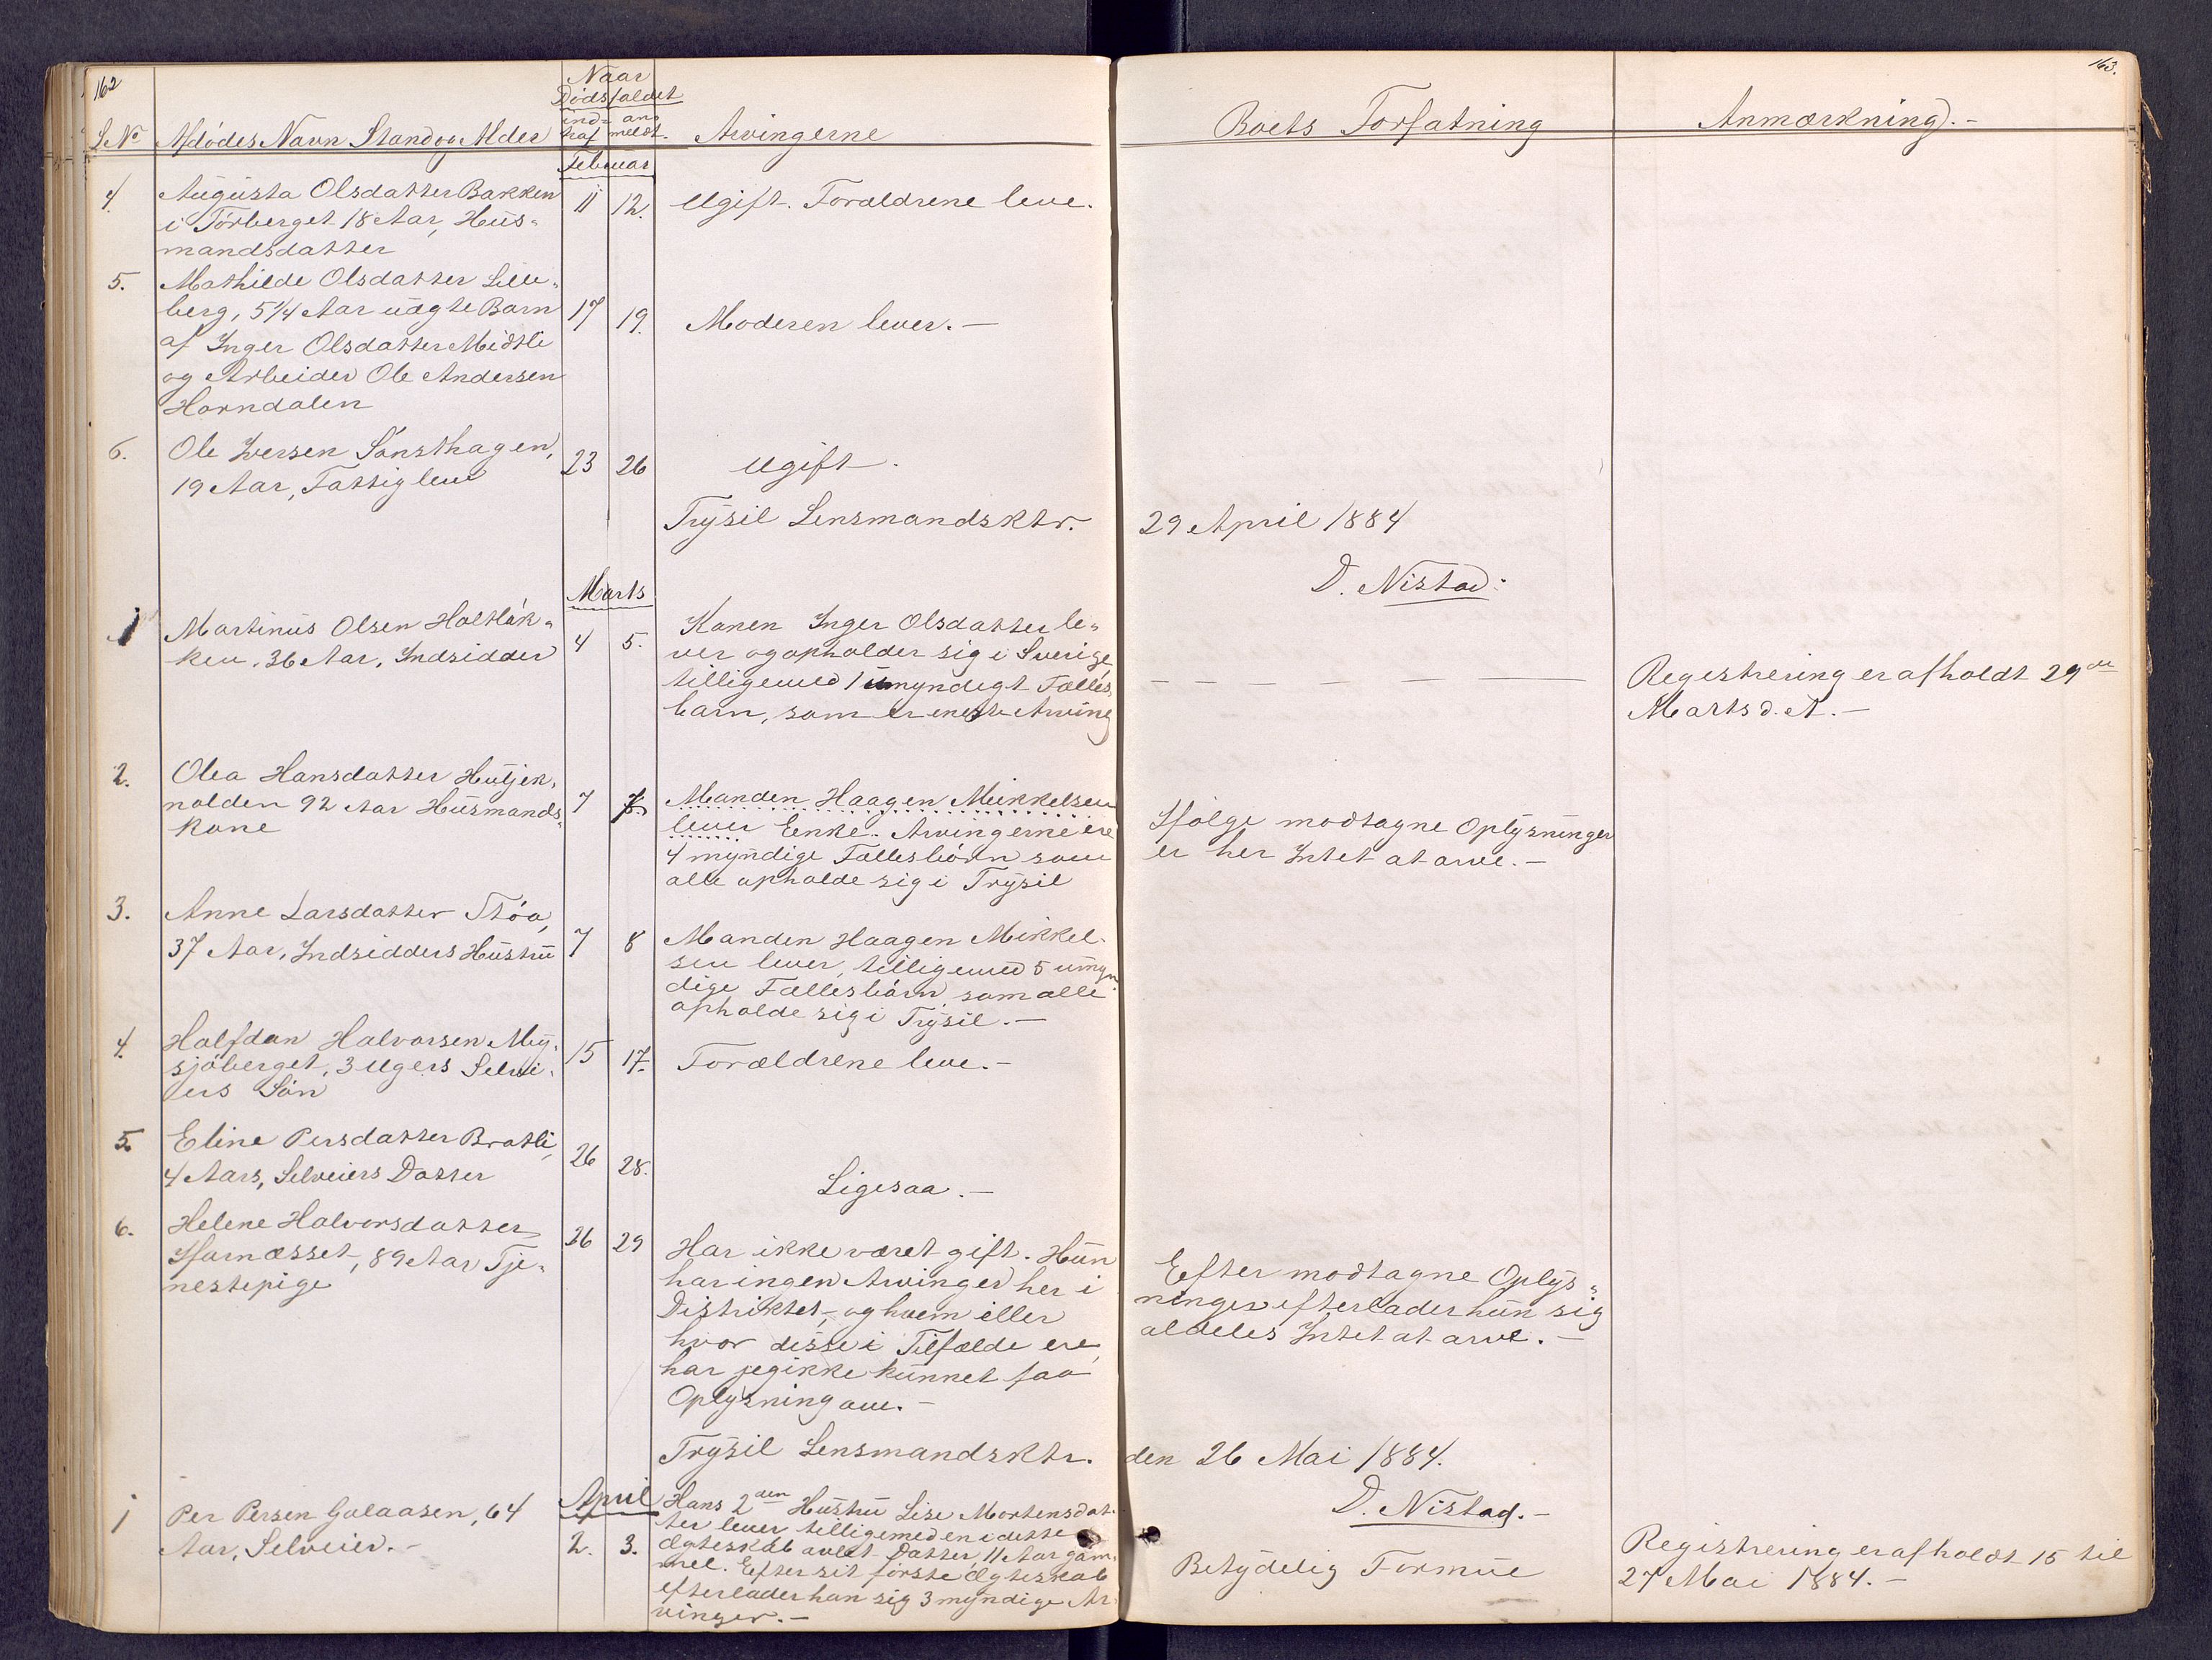 162
163.
Naar
Dødsfaldet
L No Afdødes Navn Stand og Alder ind- traf an- meldt. Arvingerne Boets Forfatning Anmærkning.-
Februar
4. Augusta Olsdatter Bakken 11 12. Ugift. Forældrene leve.
i Törberget 18 Aar, Hus-
mandsdatter
5. Mathilde Olsdatter Lille-
berg, 5 1/4 Aar uægte Barn 17 19. Moderen lever.-
af Inger Olsdatter Midtli
og Arbeider Ole Andersen
Horndalen
6. Ole Iversen Sönsthagen, 23 26 Ugift.
19 Aar, Fattiglem
Trysil Lensmandsktr. 29 April 1884
D. Nistad.
Marts
1 Martinus Olsen Holtlök- 4 5. Konen Inger Olsdatter le-
ken, 36 Aar, Indsidder ver og opholder sig i Sverige
tilligemed 1 umyndigt Fælles- Registrering er afholdt 29de
barn, som er eneste Arving Marts d. A.-
2. Olea Hansdatter Hutjek-
nolden 92 Aar Husmands- 7 8. Manden Haagen Mikkelsen
kone lever Enke. Arvingerne ere Ifølge modtagne Oplysninger
4 myndige Fællesbörn som er her Intet at arve.-
alle opholde sig i Trysil
3. Anne Larsdatter Stöa,
37 Aar, Indsidders Hustru 7 8 Manden Haagen Mikkel-
sen lever, tilligemed 5 umyn-
dige Fællesbörn, som alle
opholde sig i Trysil.-
4. Halfdan Halvorsen My- 15 17. Forældrene leve.-
sjöberget, 3 Ugers Selvei-
ers Sön
5. Eline Persdatter Bratli, 26 28.
4 Aars, Selveiers Datter Ligesaa.-
6. Helene Halvorsdatter 26 29 Har ikke været gift. Hun
89 Aar Tje- har ingen Arvinger her i Eefter modtagne Oplys-
nestepige Distriktet, og hvem eller ninger efterlader hun sig
hvor disse i Tilfælde ere, aldeles Intet at arve.-
har jeg ikke kunnet faa
Oplysning om.-
Trysil Lensmandsktr. den 26 Mai 1884.
D. Nistad.-
April
1 Per Persen Galaasen, 64 Hans 2den Hustru Lise Mortensdat-
Aar, Selveier.- 2. 3. ter lever tilligemed en i dette
Ægteskab avlet Datter, 11 Aar gam-
mel. Efter sit förste Ægteskab Betydelig Formue Registrering er afholdt 15 til
efterlader han sig 3 myndige Ar- 27 Mai 1884.-
vinger.-